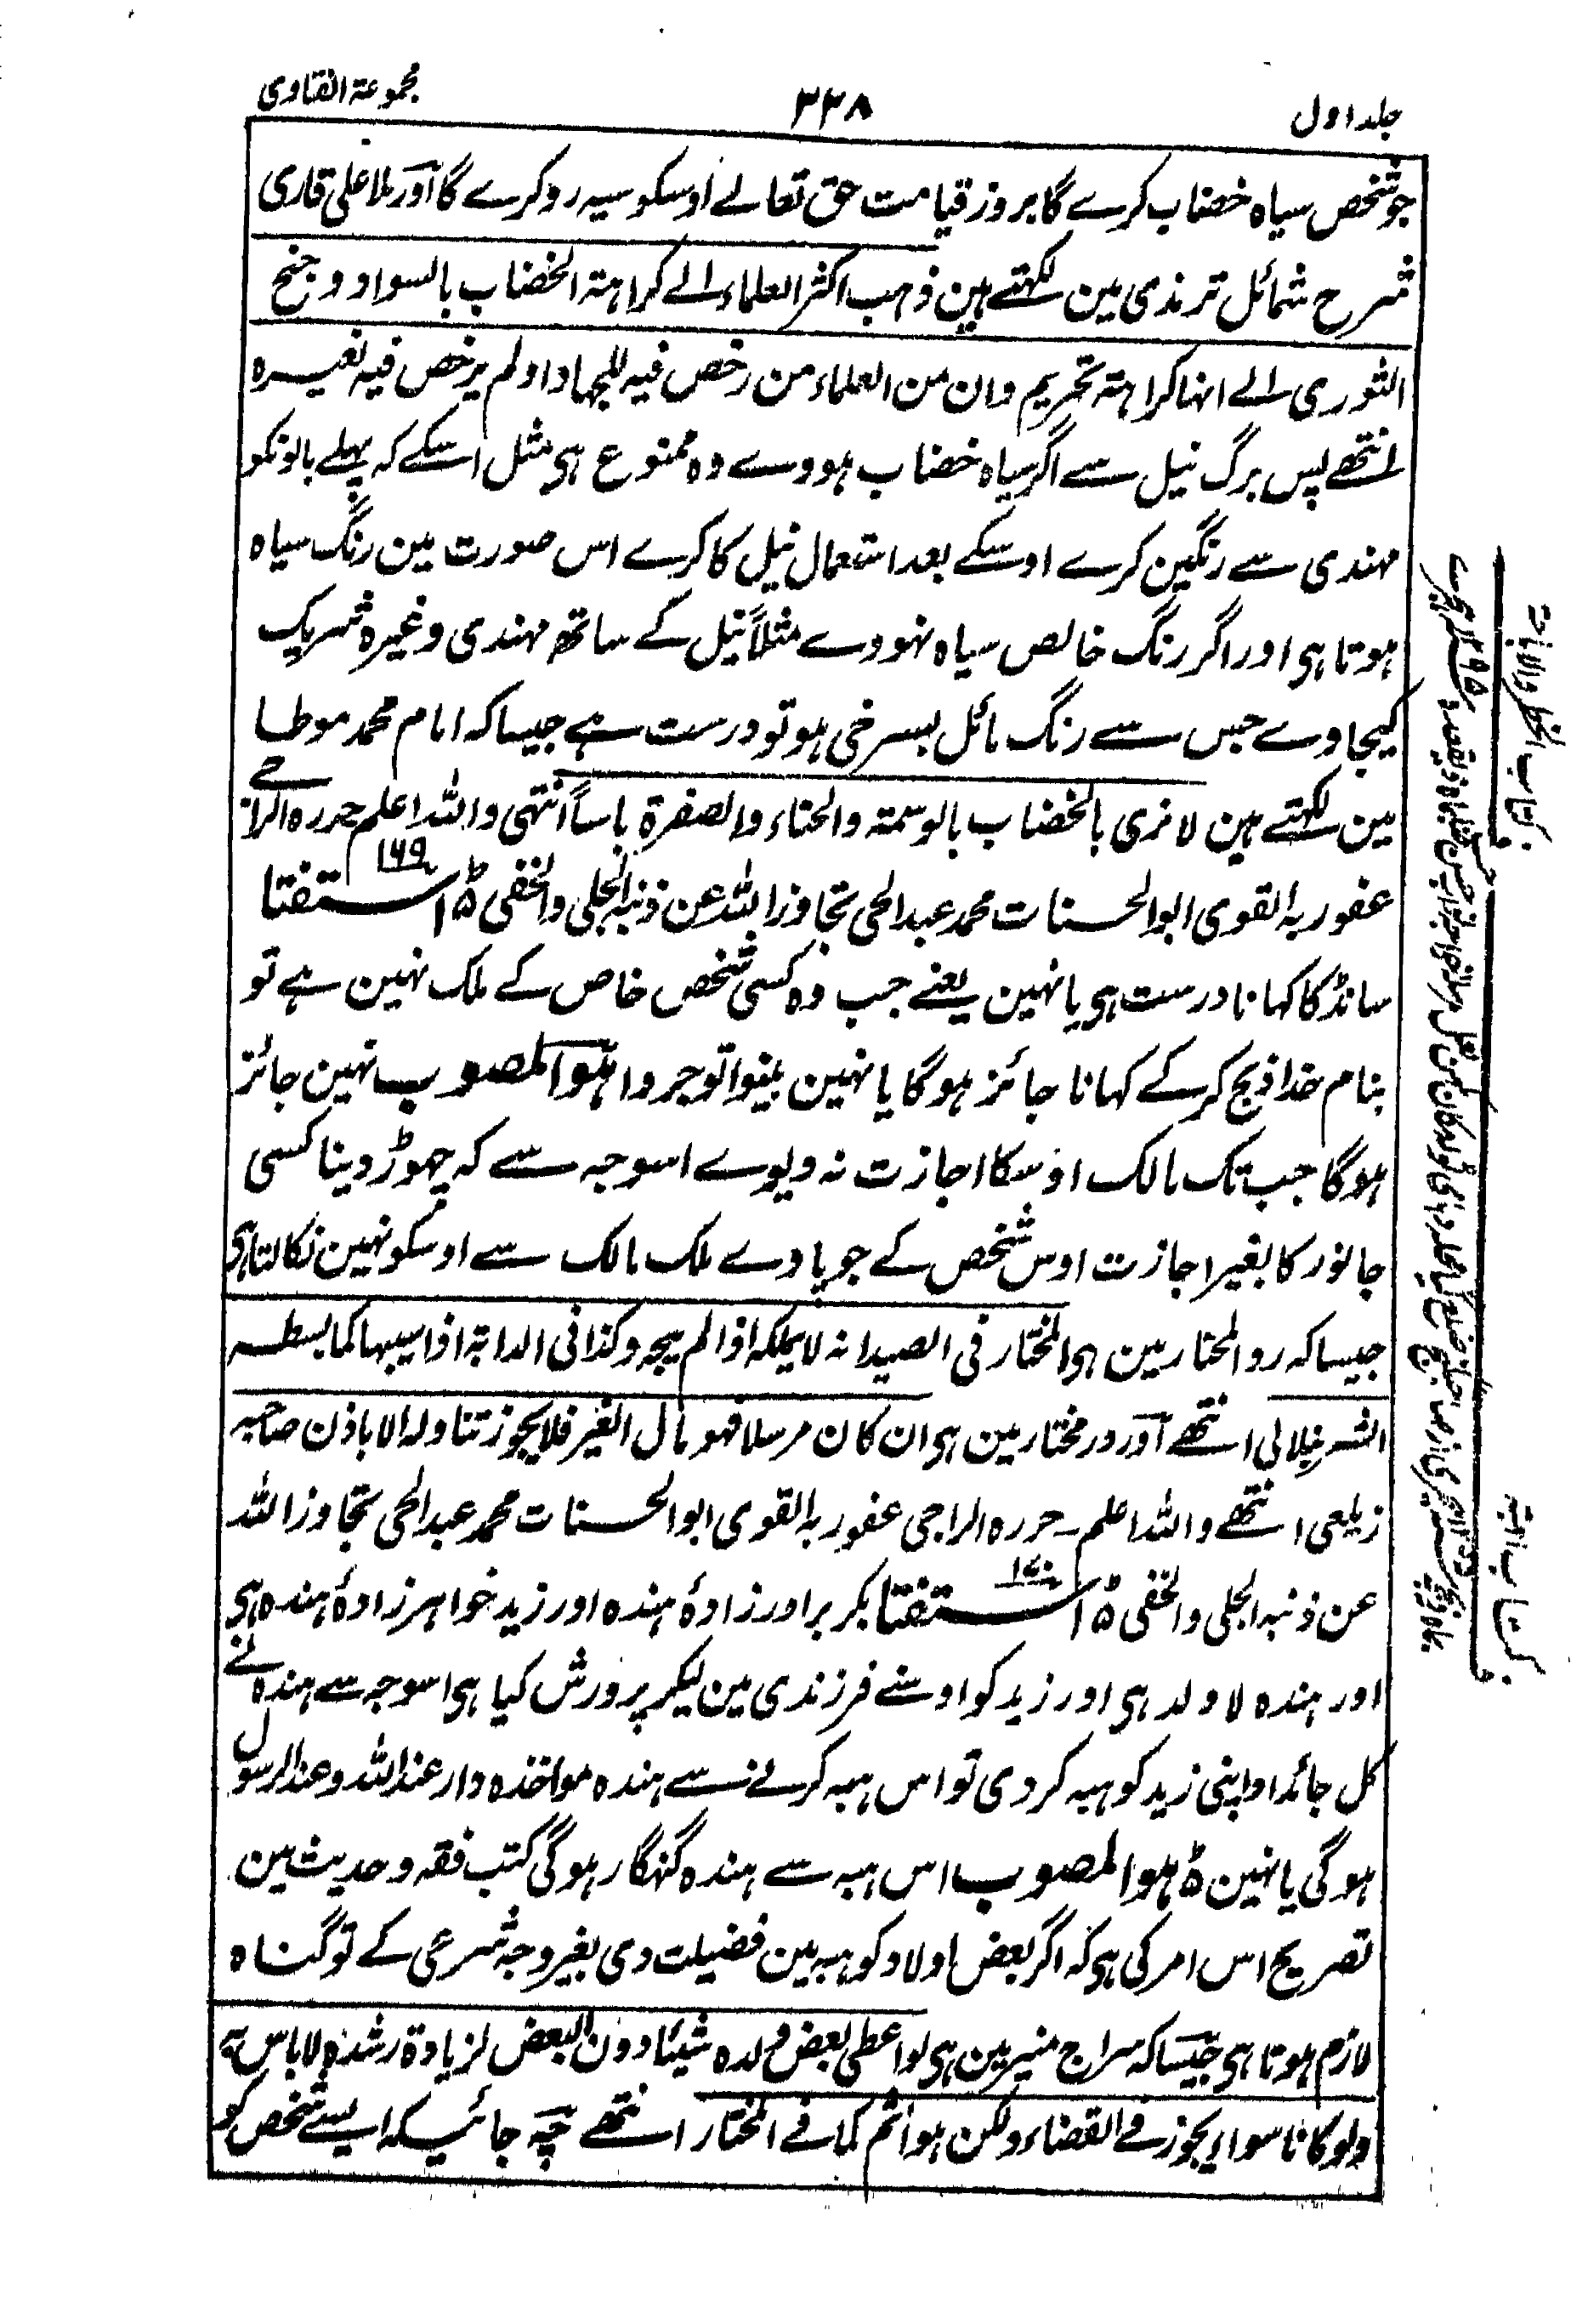 جلد اول
۳۳۸
مجموعۃ الفتاوی
جو شخص سیاہ خضاب کرے گا بروز قیامت حق تعالے اوسکو سیہ رو کرے گا اور ملا علی قاری
شرح شمائل ترمذی مین لکھتے ہین ذہب اکثر العلماء الے کراہتہ الخضاب بالسواد و جنح
النوری الے انہا کراہتہ تحریم وان من العلماء من رخص فیہ للجہاد و لم یرخص فیہ لغیرہ
انتھے پس برگ نیل سے اگر سیاہ خضاب ہووے وہ ممنوع ہی مثل اسکے کہ پہلے بالونکو
مہندی سے رنگین کرے اوسکے بعد استعمال نیل کا کرے اس صورت مین رنگ سیاہ
ہوتا ہی اور اگر رنگ خالص سیاہ نہووے مثلاً نیل کے ساتھ مہندی وغیرہ شریک
کیجاوے جس سے رنگ مائل بسرخی ہو تو درست ہے جیسا کہ امام محمد موطا
مین لکھتے ہین لا نری بالخضاب بالوسمۃ والحناء والصفرۃ باساً انتہی واللہ اعلم حررہ الراجے
عفو ربہ القوی ابو الحسنات محمد عبدالحی تجاوز اللہ عن ذنبہ الجلی والخفی استفتا ۱۶۹
سانڈ کا کہانا درست ہی یا نہین یعنے جب وہ کسی شخص خاص کے ملک نہین ہے تو
بنام خدا ذبح کر کے کہانا جائز ہوگا یا نہین بینوا توجروا ہو المصوب نہین جائز
ہوگا جب تک مالک اوسکا اجازت نہ دیوے اسوجہ سے کہ چھوڑ دینا کسی
جانور کا بغیر اجازت اوس شخص کے جو پاوے ملک مالک سے اوسکو نہین نکالتا ہی
جیسا کہ رد المحتار مین ہی المختار فی الصید انہ لا یملکہ اذا لم یبحہ وکذا فی الدابۃ اذا سیبہا کما بسطہ
الشرنبلالی انتھے اور در مختار مین ہی ان کان مرسلا فہو مال الغیر فلا یجوز تناولہ الا باذن صاحبہ
زیلعی انتھے واللہ اعلم۔ حررہ الراجی عفو ربہ القوی ابو الحسنات محمد عبدالحی تجاوز اللہ
عن ذنبہ الجلی والخفی استفتا ۱۷۰ بکر برادر زادۂ ہندہ اور زید خواہر زادۂ ہندہ ہی
اور ہندہ لا ولد ہی اور زید کو اوسنے فرزندی مین لیکر پرورش کیا ہی اسوجہ سے ہندہ نے
کل جائداد اپنی زید کو ہبہ کر دی تو اس ہبہ کرنے سے ہندہ مواخذہ دار عند اللہ وعند الرسول
ہوگی یا نہین ہو المصوب اس ہبہ سے ہندہ گنہگار ہوگی کتب فقہ و حدیث مین
تصریح اس امر کی ہی کہ اگر بعض اولاد کو ہبہ مین فضیلت دی بغیر وجہ شرعی کے تو گناہ
لازم ہوتا ہی جیسا کہ سراج منیر مین ہی لو اعطی بعض ولدہ شیئا دون البعض لزیادۃ رشدہ لا باس بہ
ولو کانا سواء یجوز فے القضاء ولکن ہو آثم کما فے المختار انتھے چہ جائیکہ ایسے شخص کو
کتاب الحظر والاباحۃ
کتاب الہبۃ